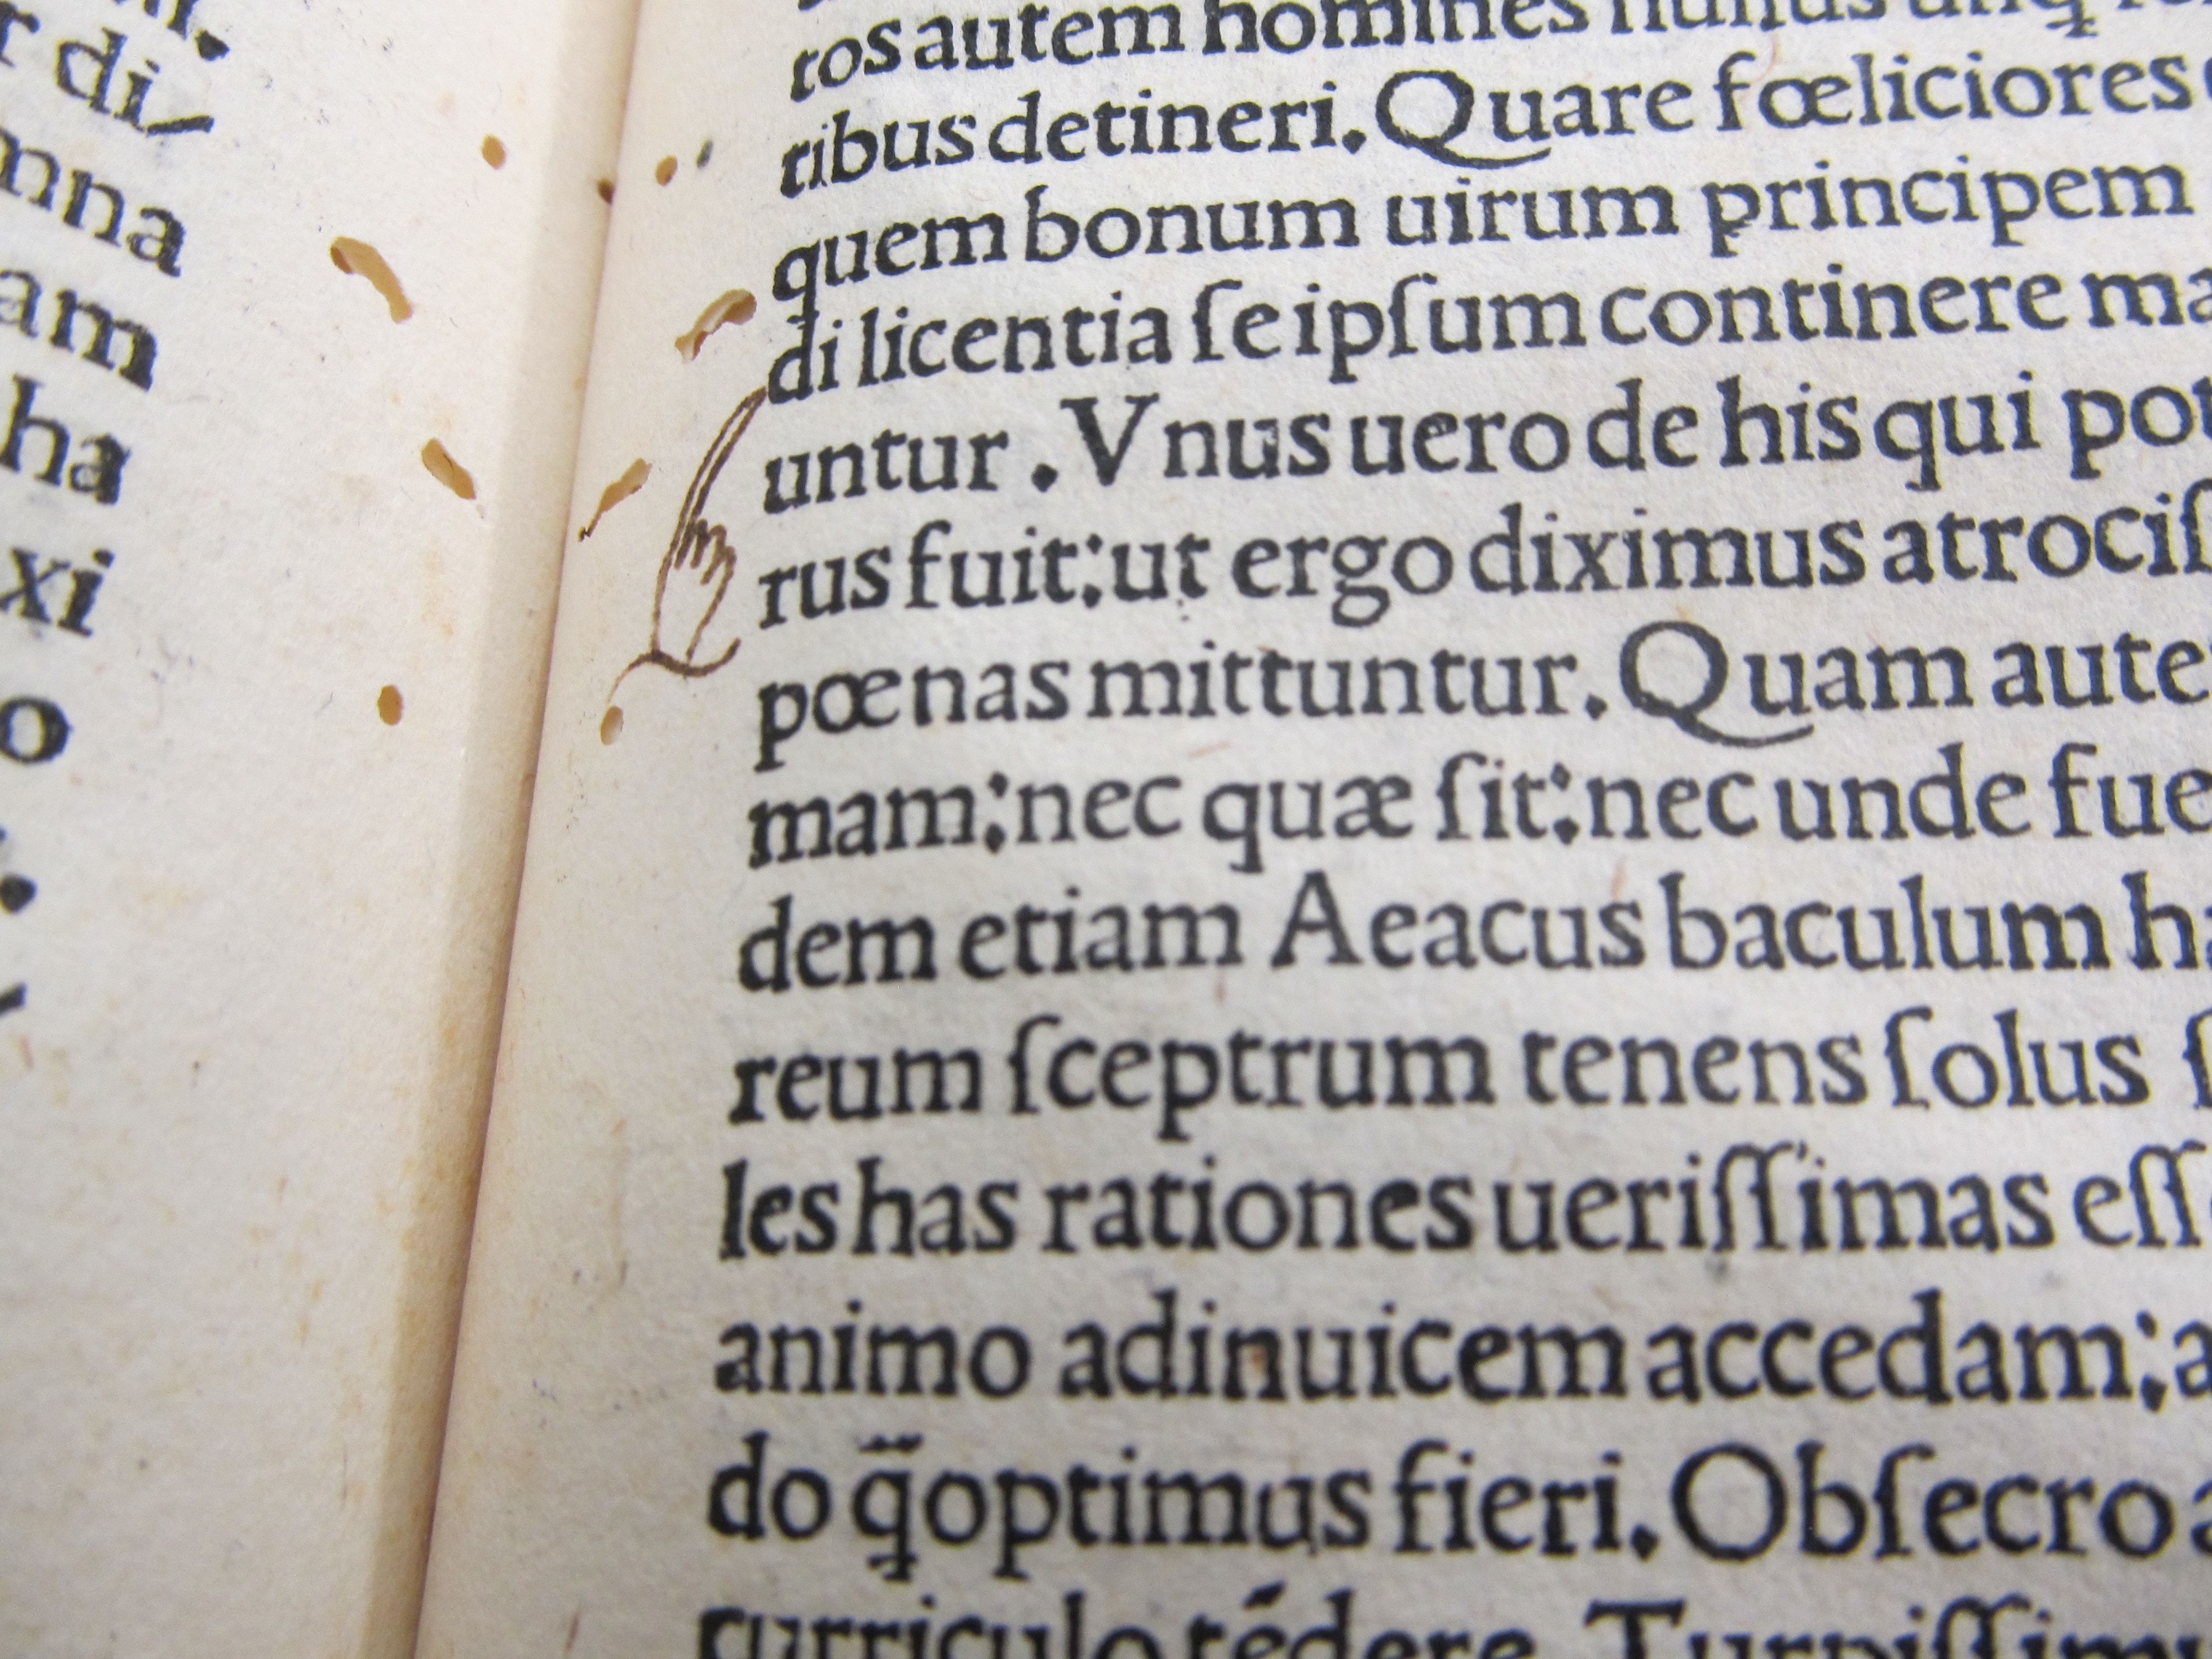 di
mna
am
ha
xi
o
tos autem homines nullius unq̃
tibus detineri. Quare fœliciores
quem bonum uirum principem
di licentia ſe ipſum continere ma
untur . Vnus uero de his qui pot
rus fuit: ut ergo diximus atrociſ
pœnas mittuntur. Quam aute
mam: nec quæ ſit: nec unde fue
dem etiam Aeacus baculum ha
reum ſceptrum tenens ſolus ſ
les has rationes ueriſſimas eſſ
animo adinuicem accedam: a
do q̃ optimus fieri. Obſecro a
curriculo tẽdere. Turpiſſimu